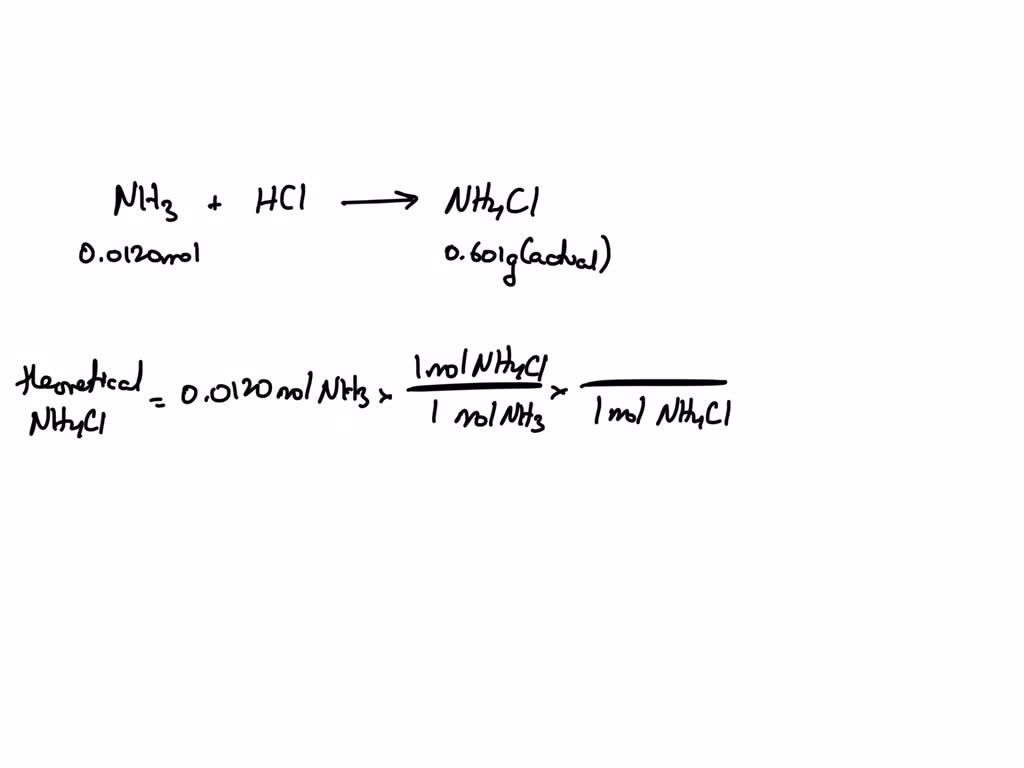 NH3 + HCl → NH4Cl
0.0120mol 0.601g(actual)
theoretical NH4Cl = 0.0120 mol NH3 × 1 mol NH4Cl / 1 mol NH3 × / 1 mol NH4Cl